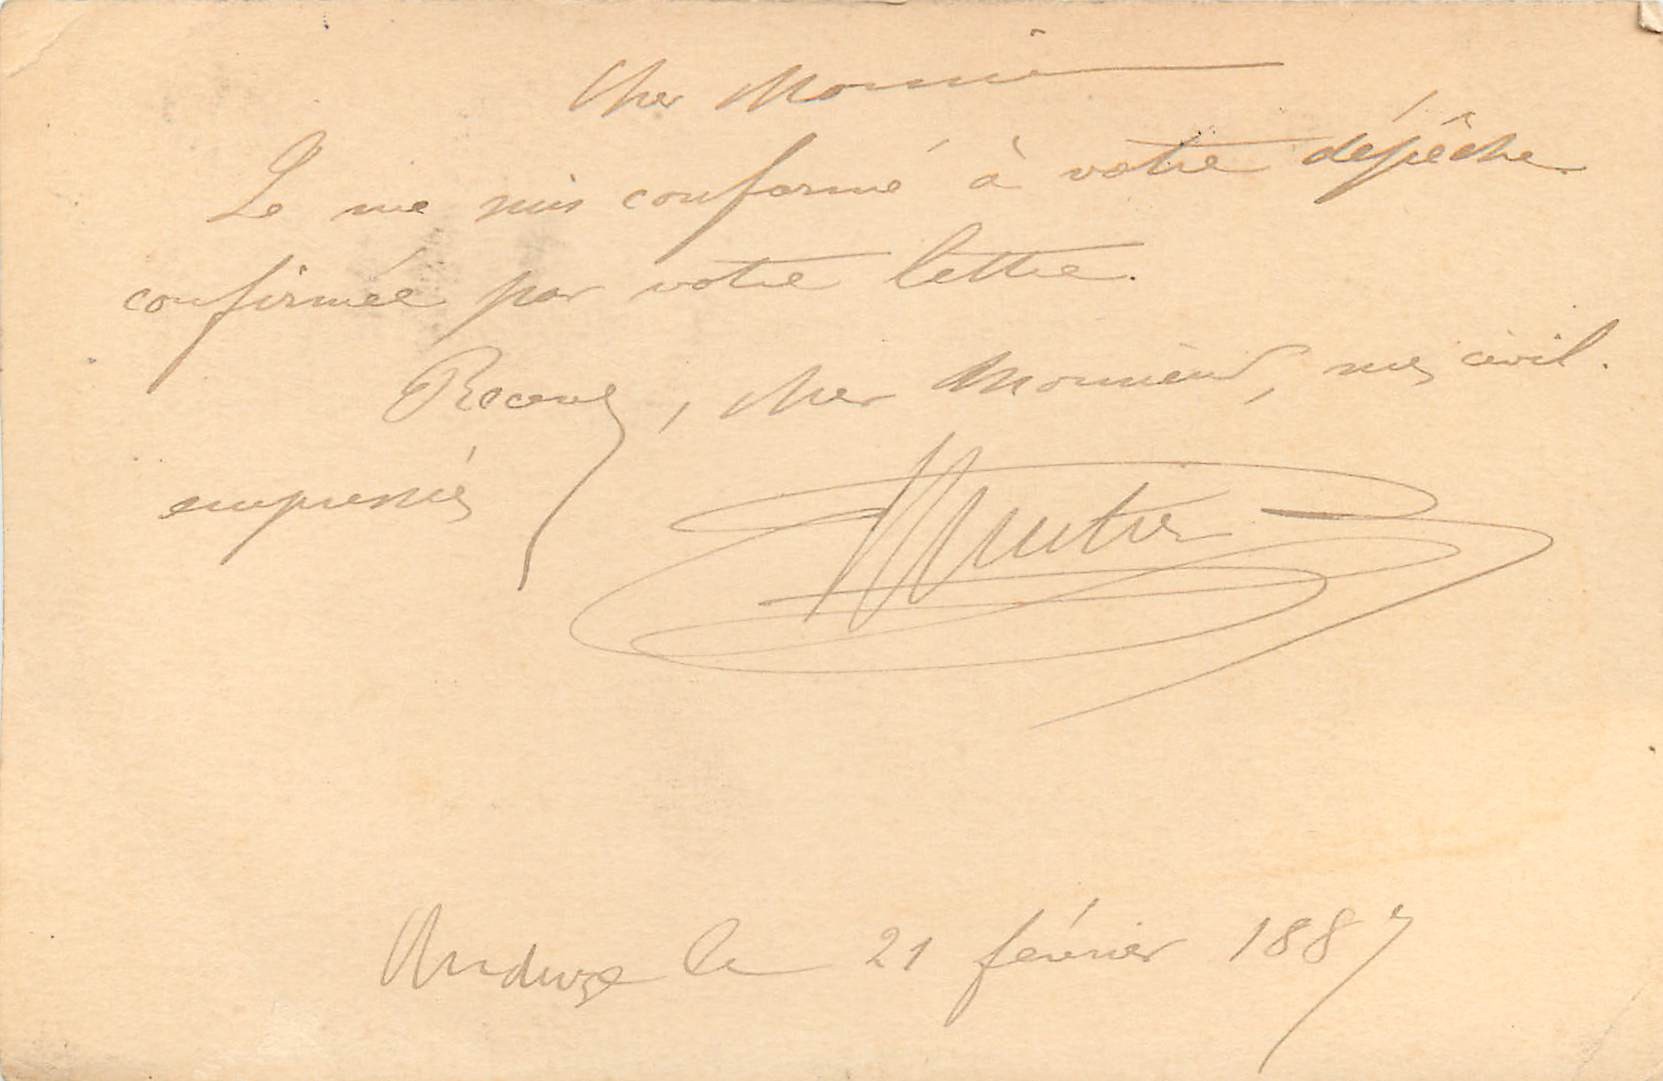 Cher Monsieur
Je me suis conformé à votre dépêche
confirmée par votre lettre.
Recevez, cher Monsieur, mes civil.
empressés
Anduze le 21 février 1887